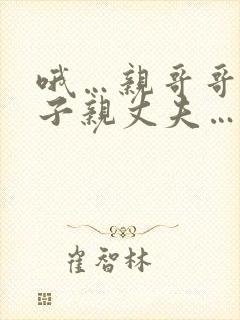 哦…親哥哥
子親丈夫…
崔智林